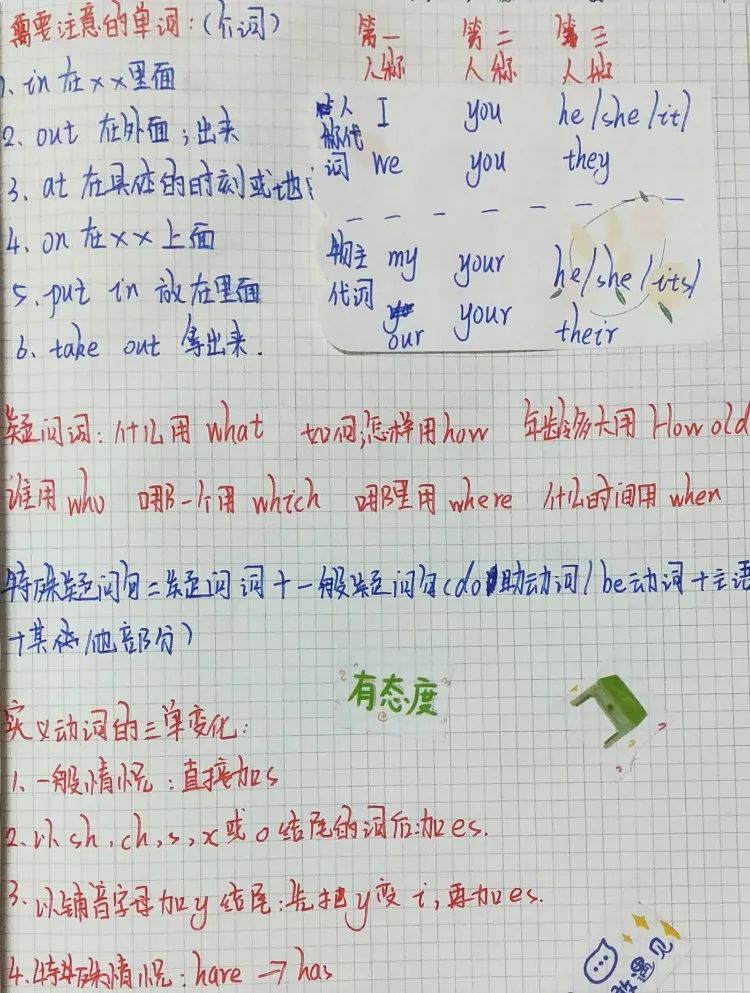 需要注意的单词:(介词)
1、in 在××里面
2、out 在外面;出来
3、at 在具体的时刻或地
4、on 在××上面
5、put in 放在里面
6、take out 拿出来.
第一人称 第二人称 第三人称
人称代词 I you he/she/it/
we you they
物主代词 my your he/she/its/
our your their
疑问词:什么用 what 如何;怎样用how 年龄多大用 How old
谁用 who 哪一个用 which 哪里用 where 什么时间用 when
特殊疑问句=疑问词+一般疑问句(do助动词/be动词+主语
+其他部分)
有态度
实义动词的三单变化:
1、一般情况:直接加s
2、以sh,ch,s,x或o结尾的词后加es.
3、以辅音字母加y结尾:先把y变i,再加es.
4、特殊情况:hare→has
遇见